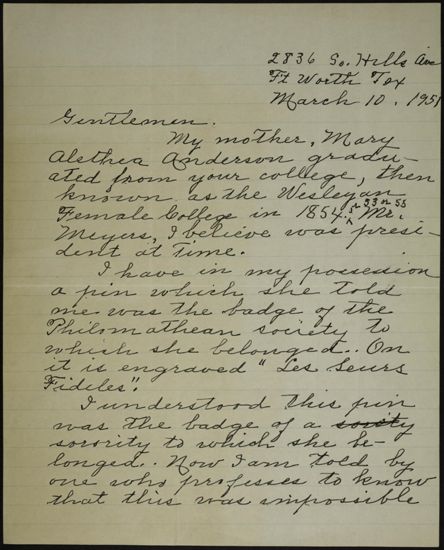 2836 So. Hills Ave
Ft Worth Tex
March 10, 1951
Gentlemen.
My mother, Mary
Alethea Anderson gradu-
ated from your college, then
known as the Wesleyan
Female College in 1854 or 53 or 55 Mr.
Meyers, I believe was presi-
dent at time.
I have in my possession
a pin which she told
me was the badge of the
Philomathean society to
which she belonged. On
it is engraved "Les Seurs
Fideles".
I understood this pin
was the badge of a society
sorority to which she be-
longed. Now I am told by
one who professes to know
that this was impossible